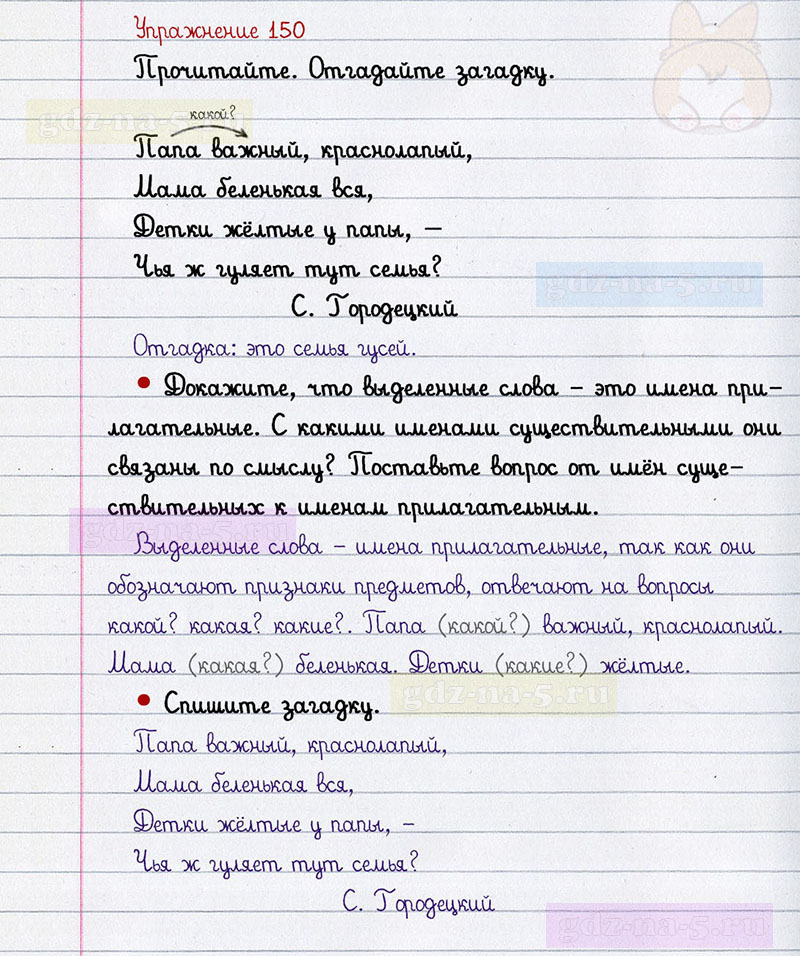 Упражнение 150
Прочитайте. Отгадайте загадку.
gdz-na-5.ru
какой?
Папа важный, краснолапый,
Мама беленькая вся,
Детки жёлтые у папы, —
Чья ж гуляет тут семья?
gdz-na-5.ru
С. Городецкий
Отгадка: это семья гусей.
• Докажите, что выделенные слова – это имена при-
лагательные. С какими именами существительными они
связаны по смыслу? Поставьте вопрос от имён суще-
ствительных к именам прилагательным.
gdz-na-5.ru
Выделенные слова – имена прилагательные, так как они
обозначают признаки предметов, отвечают на вопросы
какой? какая? какие?. Папа (какой?) важный, краснолапый.
Мама (какая?) беленькая. Детки (какие?) жёлтые.
gdz-na-5.ru
• Спишите загадку.
Папа важный, краснолапый,
Мама беленькая вся,
Детки жёлтые у папы, –
Чья ж гуляет тут семья?
С. Городецкий
gdz-na-5.ru